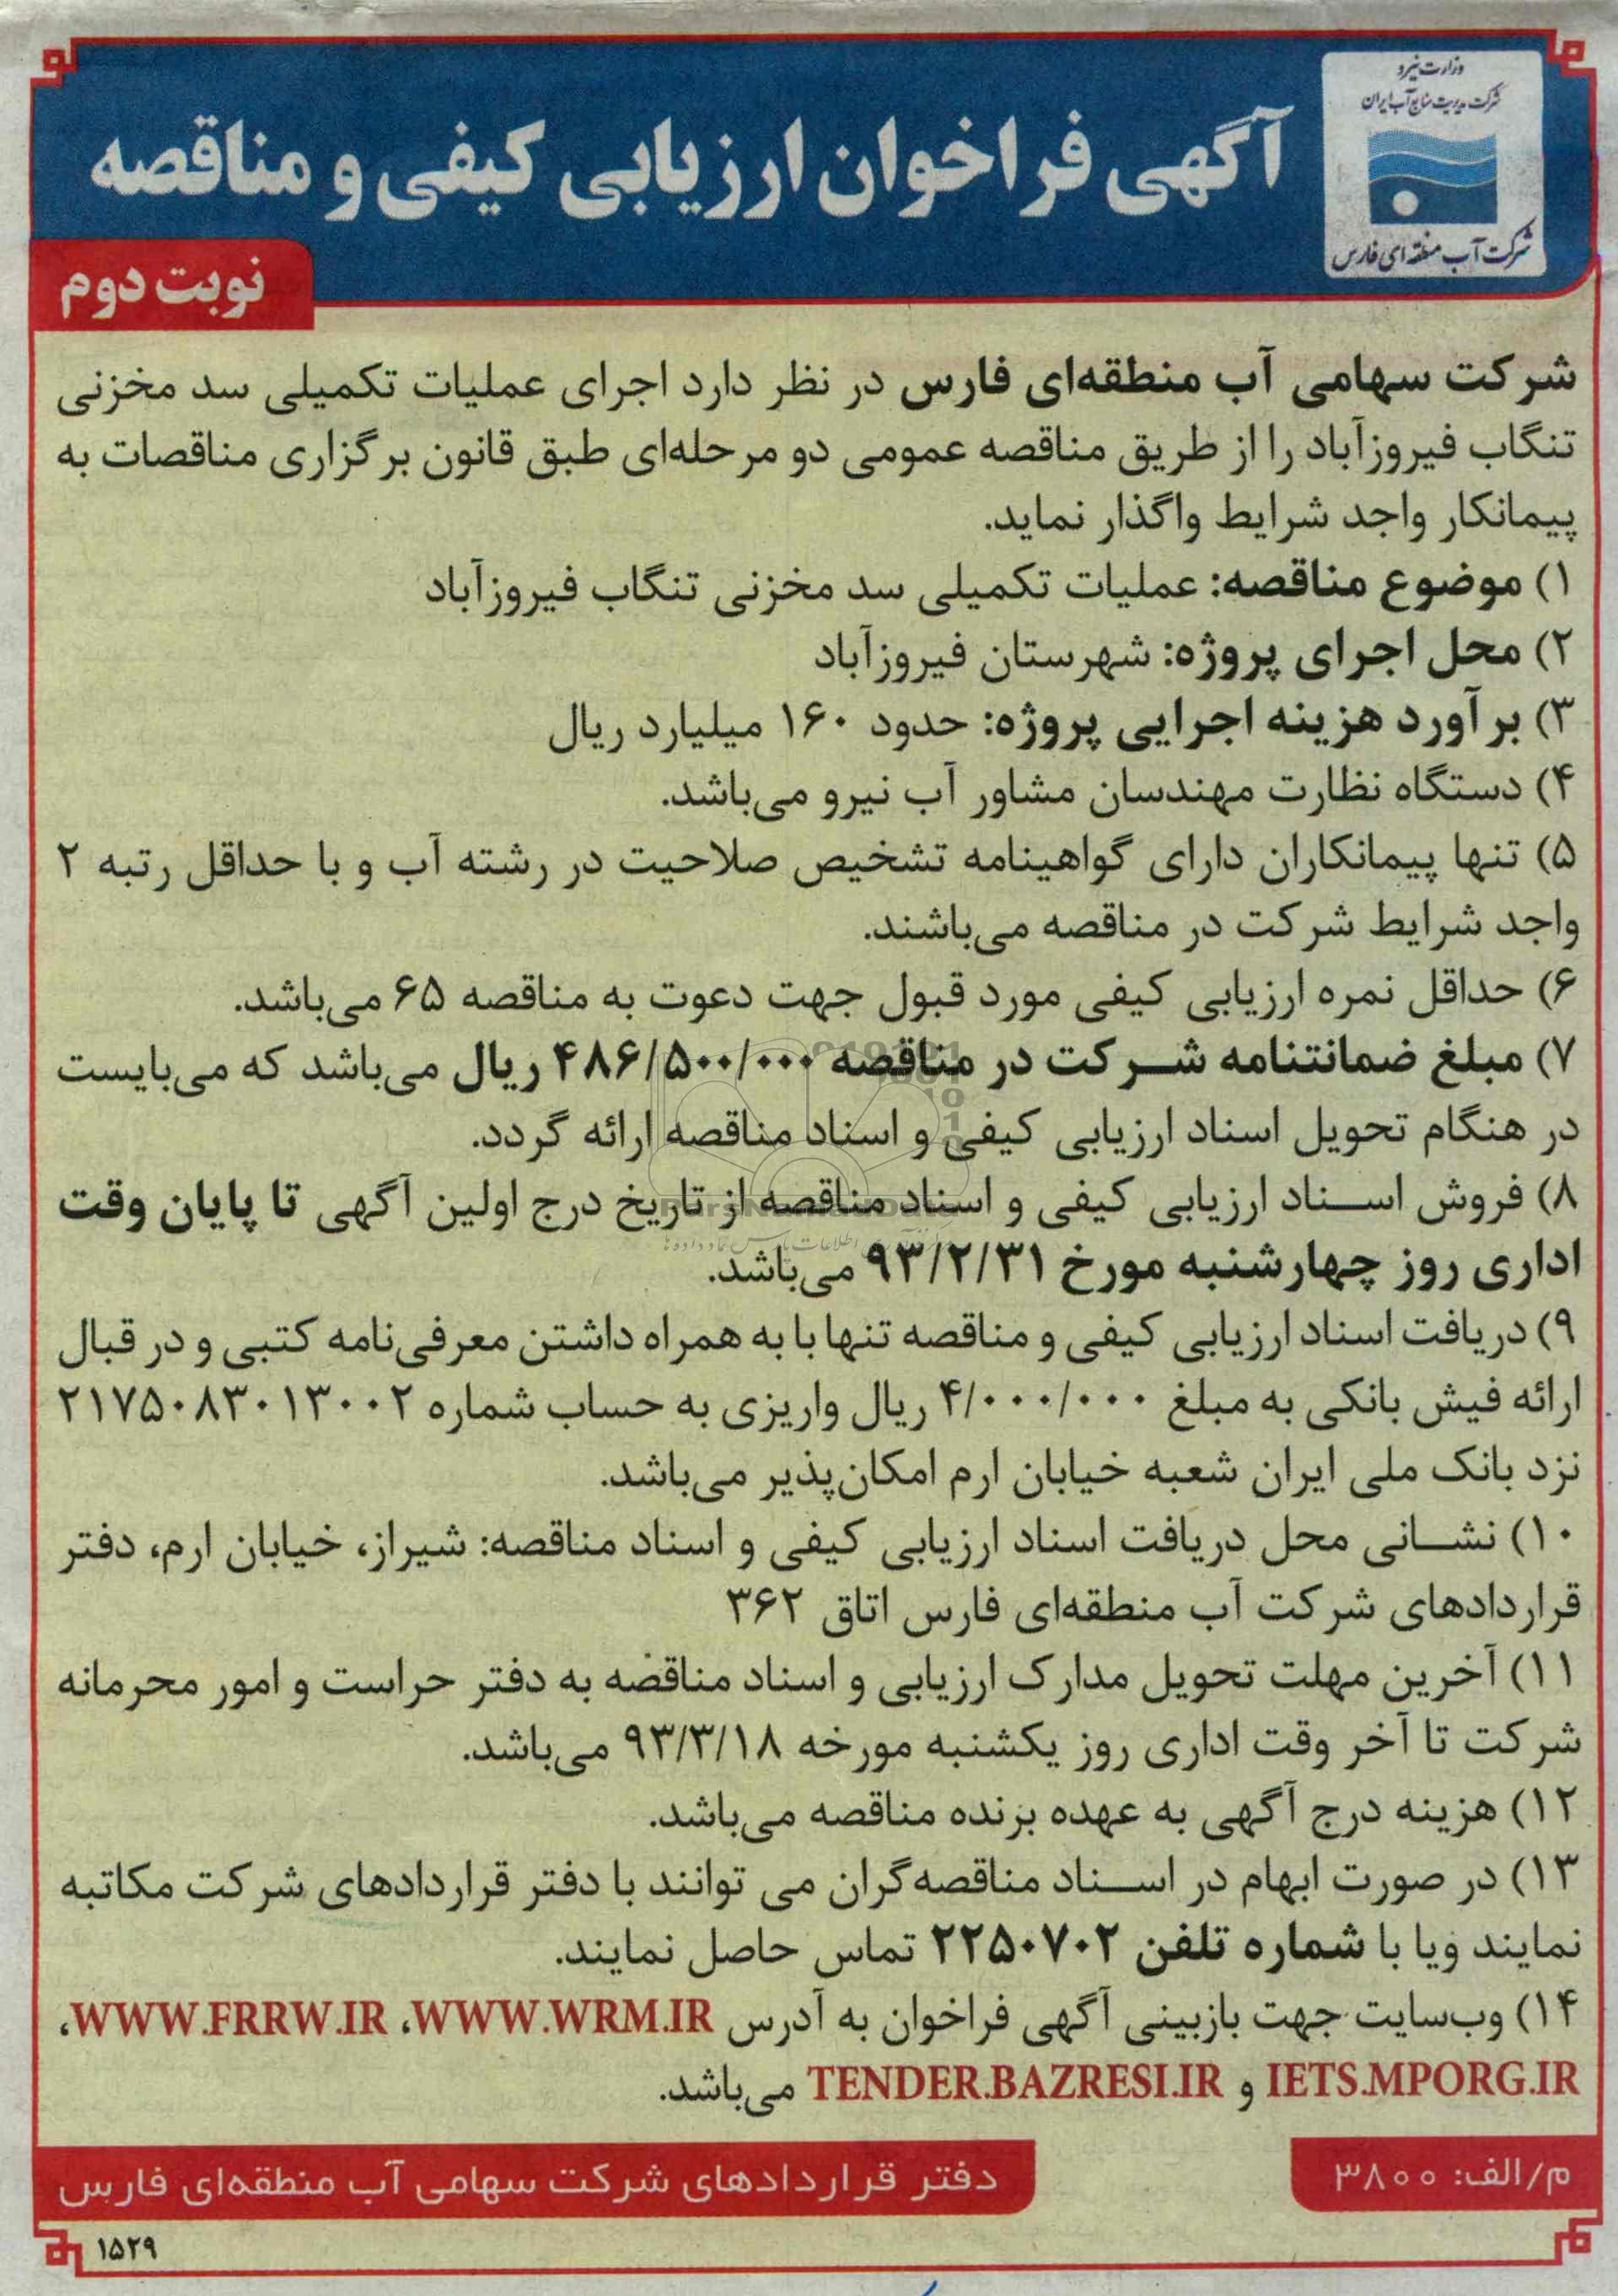 وزارت نیرو
شرکت مدیریت منابع آب ایران
شرکت آب منطقه‌ای فارس
آگهی فراخوان ارزیابی کیفی و مناقصه
نوبت دوم
شرکت سهامی آب منطقه‌ای فارس در نظر دارد اجرای عملیات تکمیلی سد مخزنی
تنگاب فیروزآباد را از طریق مناقصه عمومی دو مرحله‌ای طبق قانون برگزاری مناقصات به
پیمانکار واجد شرایط واگذار نماید.
۱) موضوع مناقصه: عملیات تکمیلی سد مخزنی تنگاب فیروزآباد
۲) محل اجرای پروژه: شهرستان فیروزآباد
۳) برآورد هزینه اجرایی پروژه: حدود ۱۶۰ میلیارد ریال
۴) دستگاه نظارت مهندسان مشاور آب نیرو می‌باشد.
۵) تنها پیمانکاران دارای گواهینامه تشخیص صلاحیت در رشته آب و با حداقل رتبه ۲
واجد شرایط شرکت در مناقصه می‌باشند.
۶) حداقل نمره ارزیابی کیفی مورد قبول جهت دعوت به مناقصه ۶۵ می‌باشد.
۷) مبلغ ضمانتنامه شرکت در مناقصه ۴۸۶/۵۰۰/۰۰۰ ریال می‌باشد که می‌بایست
در هنگام تحویل اسناد ارزیابی کیفی و اسناد مناقصه ارائه گردد.
۸) فروش اسناد ارزیابی کیفی و اسناد مناقصه از تاریخ درج اولین آگهی تا پایان وقت
اداری روز چهارشنبه مورخ ۹۳/۲/۳۱ می‌باشد.
۹) دریافت اسناد ارزیابی کیفی و مناقصه تنها با به همراه داشتن معرفی‌نامه کتبی و در قبال
ارائه فیش بانکی به مبلغ ۴/۰۰۰/۰۰۰ ریال واریزی به حساب شماره ۲۱۷۵۰۸۳۰۱۳۰۰۲
نزد بانک ملی ایران شعبه خیابان ارم امکان‌پذیر می‌باشد.
۱۰) نشانی محل دریافت اسناد ارزیابی کیفی و اسناد مناقصه: شیراز، خیابان ارم، دفتر
قراردادهای شرکت آب منطقه‌ای فارس اتاق ۳۶۲
۱۱) آخرین مهلت تحویل مدارک ارزیابی و اسناد مناقضه به دفتر حراست و امور محرمانه
شرکت تا آخر وقت اداری روز یکشنبه مورخه ۹۳/۳/۱۸ می‌باشد.
۱۲) هزینه درج آگهی به عهده برنده مناقصه می‌باشد.
۱۳) در صورت ابهام در اسناد مناقصه‌گران می توانند با دفتر قراردادهای شرکت مکاتبه
نمایند ویا با شماره تلفن ۲۲۵۰۷۰۲ تماس حاصل نمایند.
۱۴) وب‌سایت جهت بازبینی آگهی فراخوان به آدرس WWW.WRM.IR، WWW.FRRW.IR،
IETS.MPORG.IR و TENDER.BAZRESI.IR می‌باشد.
م/الف: ۳۸۰۰
دفتر قراردادهای شرکت سهامی آب منطقه‌ای فارس
۱۵۲۹